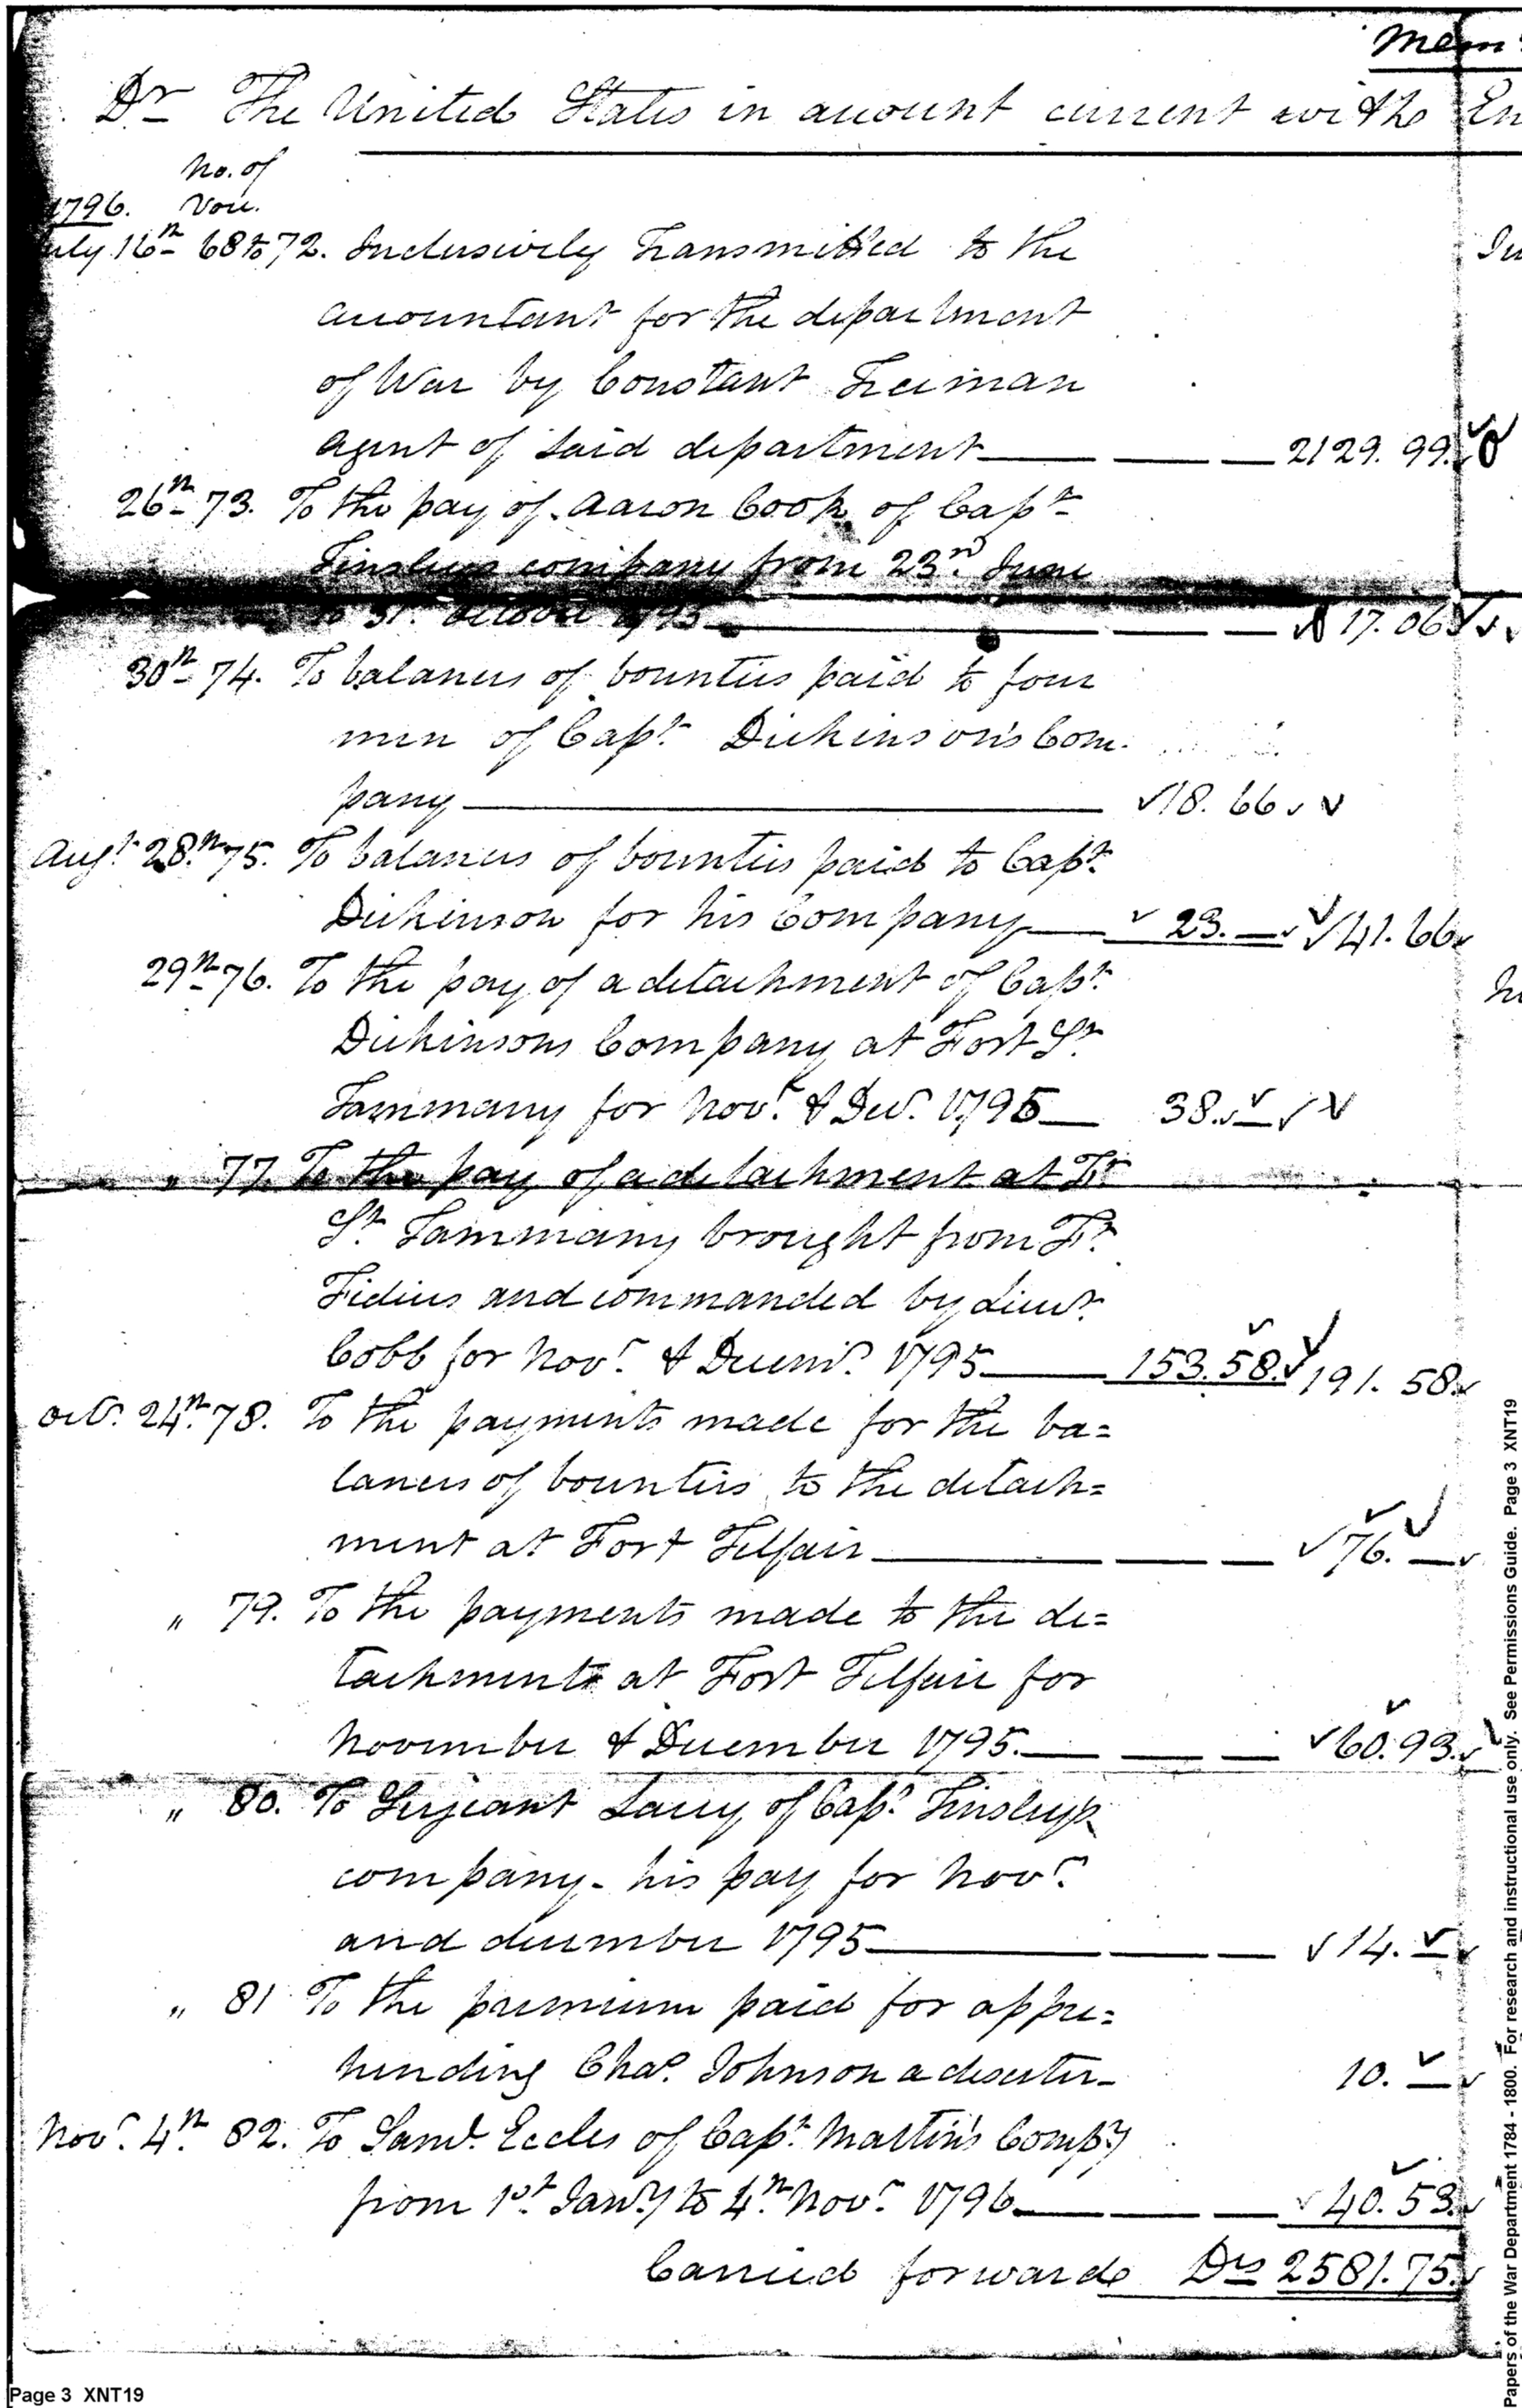 Mem
Dr The United States in account current with
No. of
1796. Vou.
July 16th 68 to 72. Inclusively Transmitted to the
accountant for the department
of War by Constant Freeman
agent of said department 2129. 99.
26th 73. To the pay of Aaron Cook of Capt
Tinsleys company from 23rd June
to 31st October 1795 17.06
30th 74. To balances of bounties paid to four
men of Capt. Dickinson's Com.
pany 18. 66
Augt 28th 75. To balances of bounties paid to Capt
Dickinson for his Company 23. — 41. 66
29th 76. To the pay of a detachment of Capt
Dickinsons Company at Fort St
Tammany for Novr. & Decr. 1795 38. —
" 77. To the pay of a detachment at Ft
St Tammany brought from Ft
Fidius and commanded by Lieut.
Cobb for Novr. & Decemr. 1795 153.58. 191. 58
Octr. 24th 78. To the payments made for the ba=
lances of bounties to the detach=
ment at Fort Telfair 76. —
" 79. To the payments made to the de=
tachment at Fort Telfair for
November & December 1795. 60.93.
" 80. To Serjeant Lacey of Capt. Tinsleys
company - his pay for Novr.
and december 1795 14. —
" 81 To the premium paid for appre=
hending Chas. Johnson a deserter 10. —
Novr. 4th 82. To Saml. Eccles of Capt. Martin's Compy
from 1st Jany to 4th Novr. 1796 40. 53.
Carried forward Drs 2581.75.
Page 3 XNT19
Papers of the War Department 1784 - 1800. For research and instructional use only. See Permissions Guide. Page 3 XNT19